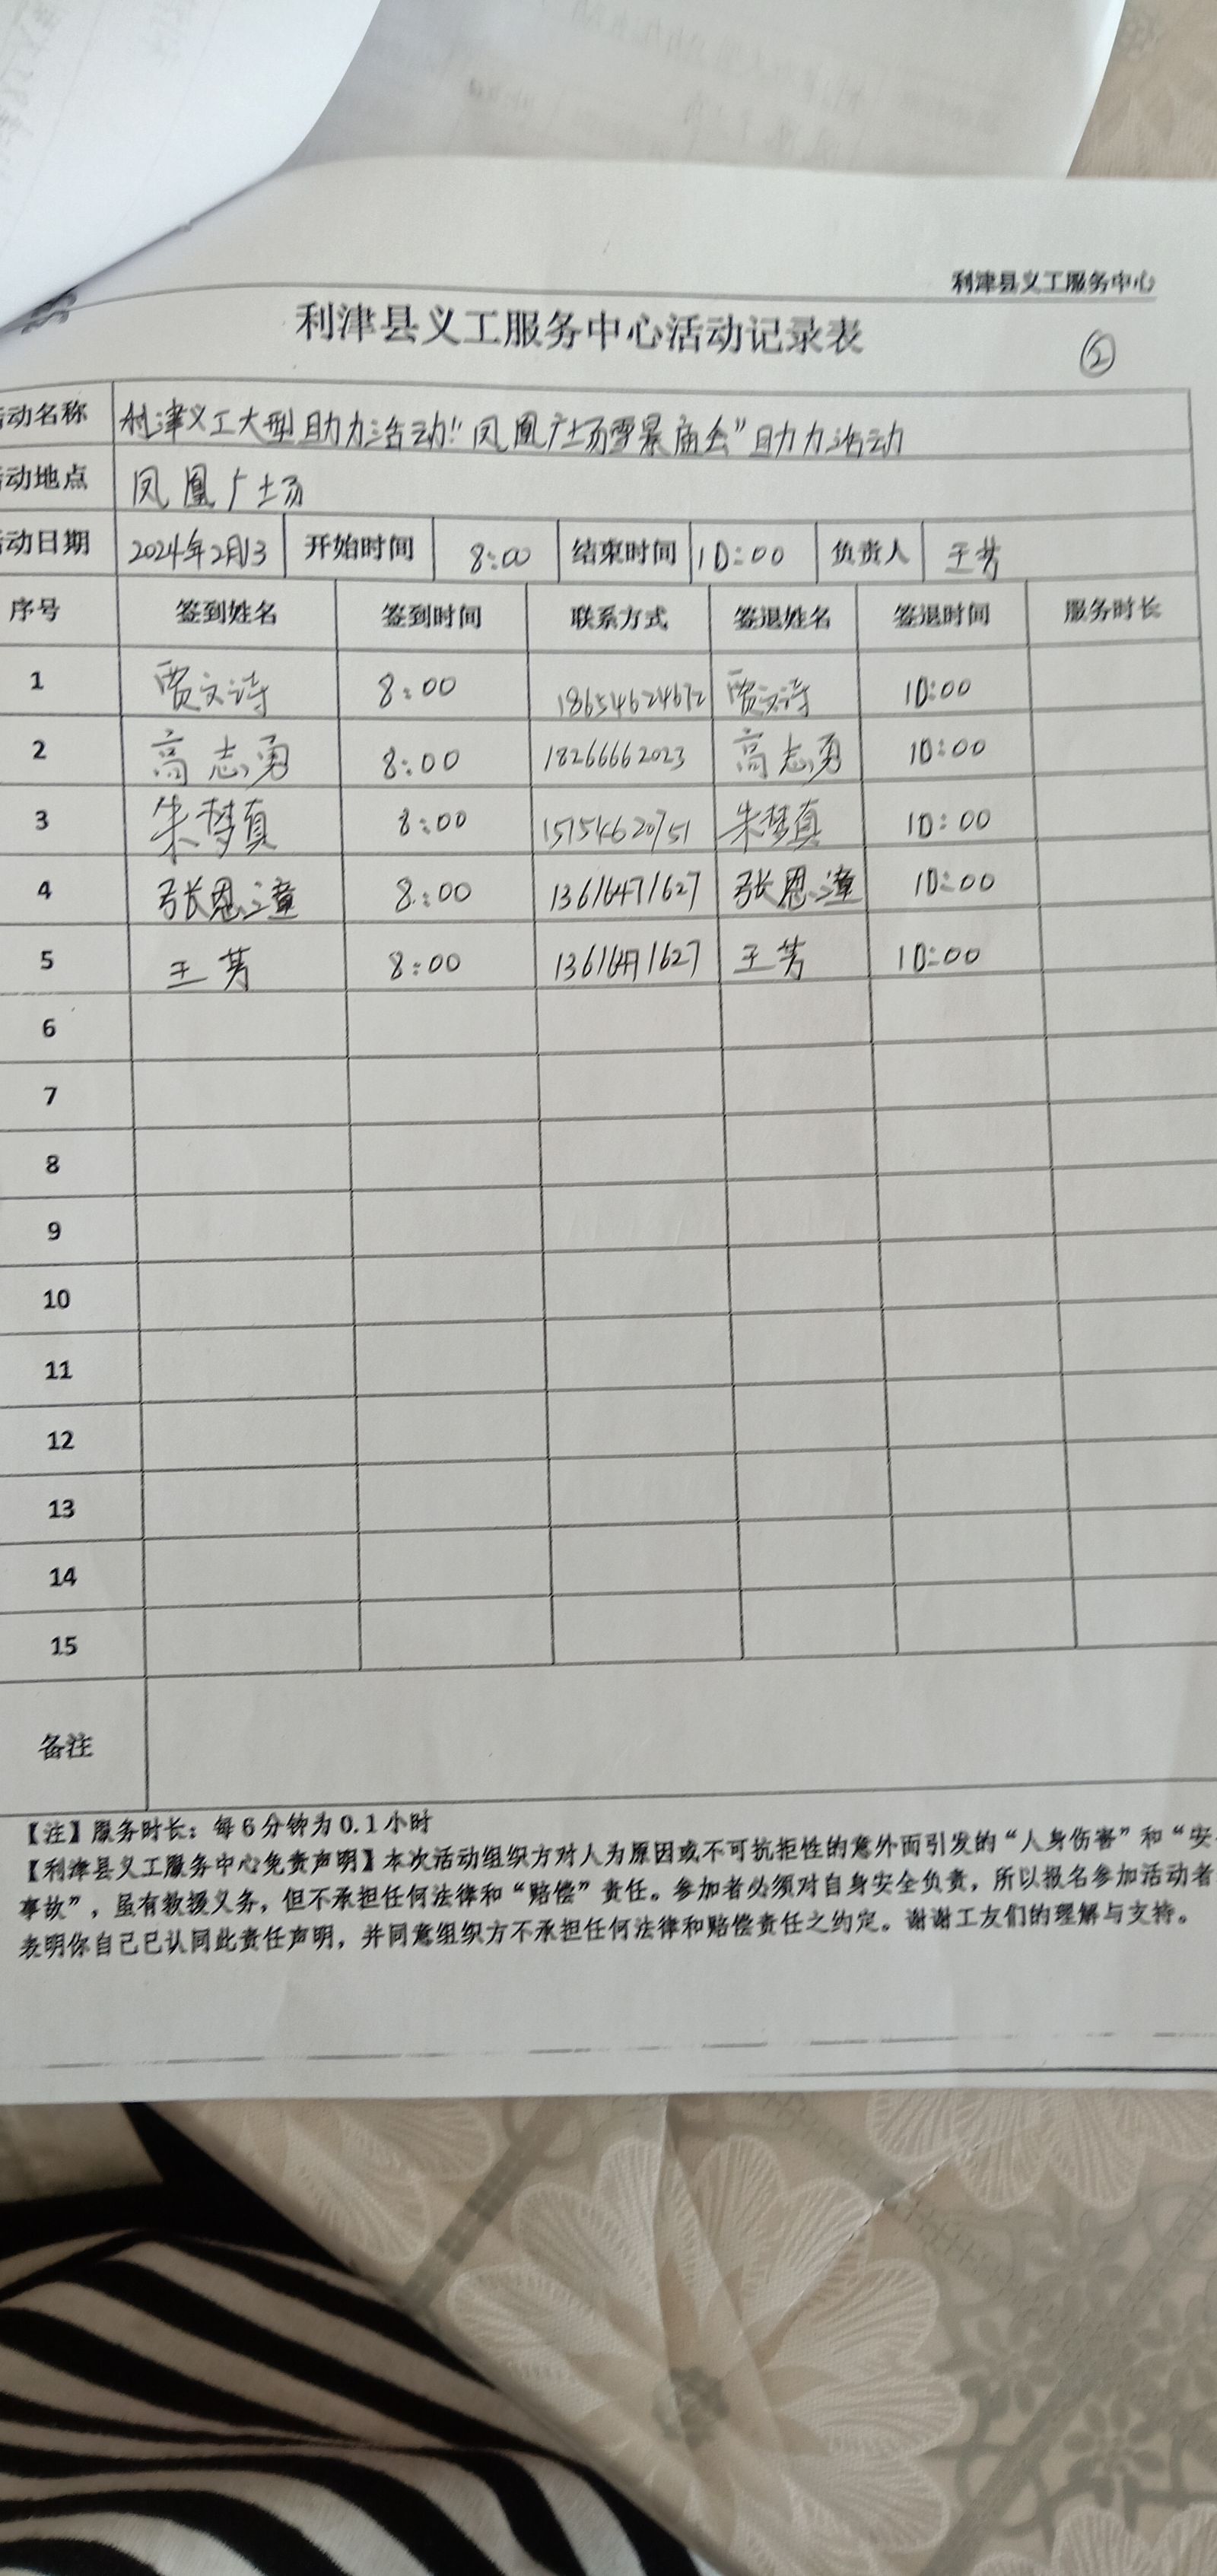 利津县义工服务中心
利津县义工服务中心活动记录表
②
活动名称 利津义工大型助力活动"凤凰广场雪景庙会"助力活动
活动地点 凤凰广场
活动日期 2024年2月13 开始时间 8:00 结束时间 10:00 负责人 王芳
序号 签到姓名 签到时间 联系方式 签退姓名 签退时间 服务时长
1 贾文诗 8:00 18654624672 贾文诗 10:00
2 高志勇 8:00 18266662023 高志勇 10:00
3 朱梦真 8:00 15754620751 朱梦真 10:00
4 张恩潼 8:00 13616471627 张恩潼 10:00
5 王芳 8:00 13616471627 王芳 10:00
6
7
8
9
10
11
12
13
14
15
备注
【注】服务时长：每6分钟为0.1小时
【利津县义工服务中心免责声明】本次活动组织方对人为原因或不可抗拒性的意外而引发的“人身伤害”和“安
事故”，虽有救援义务，但不承担任何法律和“赔偿”责任。参加者必须对自身安全负责，所以报名参加活动者
表明你自己已认同此责任声明，并同意组织方不承担任何法律和赔偿责任之约定。谢谢工友们的理解与支持。